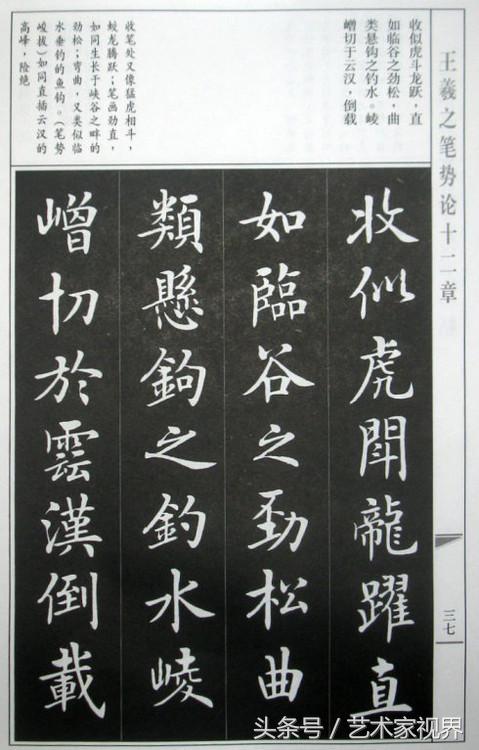 王羲之笔势论十二章
三七
收似虎斗龙跃，直
如临谷之劲松，曲
类悬钩之钓水。崚
嶒切于云汉，倒载
收笔处又像猛虎相斗，
蛟龙腾跃；笔画劲直，
如同生长于峡谷之畔的
劲松；弯曲，又类似临
水垂钓的鱼钩。（笔势
峻拔）如同直插云汉的
高峰，险绝
收似虎鬥龍躍直
如臨谷之勁松曲
類懸鉤之釣水崚
嶒切於雲漢倒載
头条号／艺术家视界